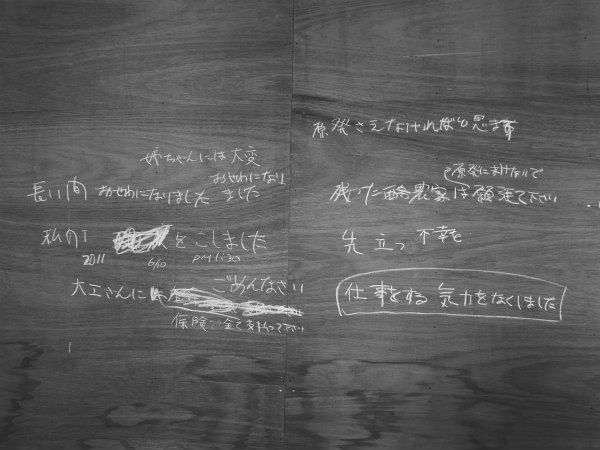 姉ちゃんには大変
おせわになり
長い間 おせわになりました ました
私の をこしました
2011 6/10 PM1:30
大工さんに ごめんなさい
保険で全て支払って下さい
原発さえなければと思います
原発にまけないで
残った酪農家は願張て下さい
先立つ 不幸を
仕事をする気力をなくしました